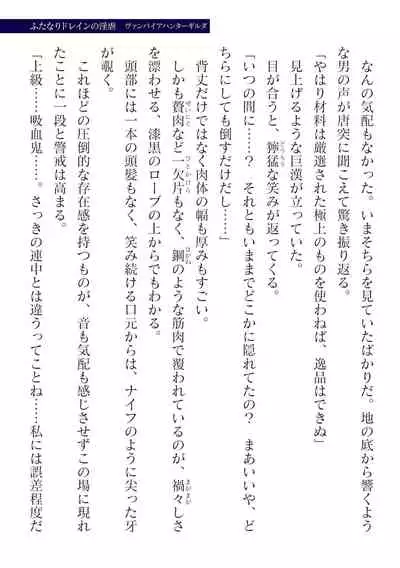 ふたなりドレインの淫虐　ヴァンパイアハンターギルダ
なんの気配もなかった。いまそちらを見ていたばかりだ。地の底から響くよう
な男の声が唐突に聞こえて驚き振り返る。
「やはり材料は厳選された極上のものを使わねば、逸品はできぬ」
見上げるような巨漢が立っていた。
目が合うと、獰猛な笑みが返ってくる。
「いつの間に……？　それともいままでどこかに隠れてたの？　まあいいや、ど
ちらにしても倒すだけだし……」
背丈だけではなく肉体の幅も厚みもすごい。
しかも贅肉など一欠片もなく、鋼のような筋肉で覆われているのが、禍々しさ
を漂わせる、漆黒のローブの上からでもわかる。
頭部には一本の頭髪もなく、笑み続ける口元からは、ナイフのように尖った牙
が覗く。
これほどの圧倒的な存在感を持つものが、音も気配も感じさせずこの場に現れ
たことに一段と警戒は高まる。
「上級……吸血鬼……。さっきの連中とは違うってことね……私には誤差程度だ